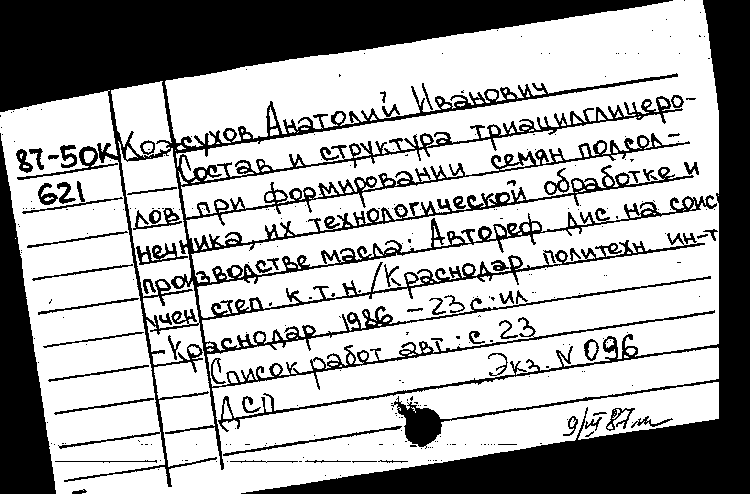 87-50К Кожухов, Анатолий Иванович
621 Состав и структура триацилглицеро-
лов при формировании семян подсол-
нечника, их технологической обработке и
производстве масла: Автореф. дис. на соис
учен. степ. к.т.н. / Краснодар. политехн. ин-т
- Краснодар, 1986 - 23 с.: ил.
Список работ авт.: с. 23
ДСП Экз. N 096